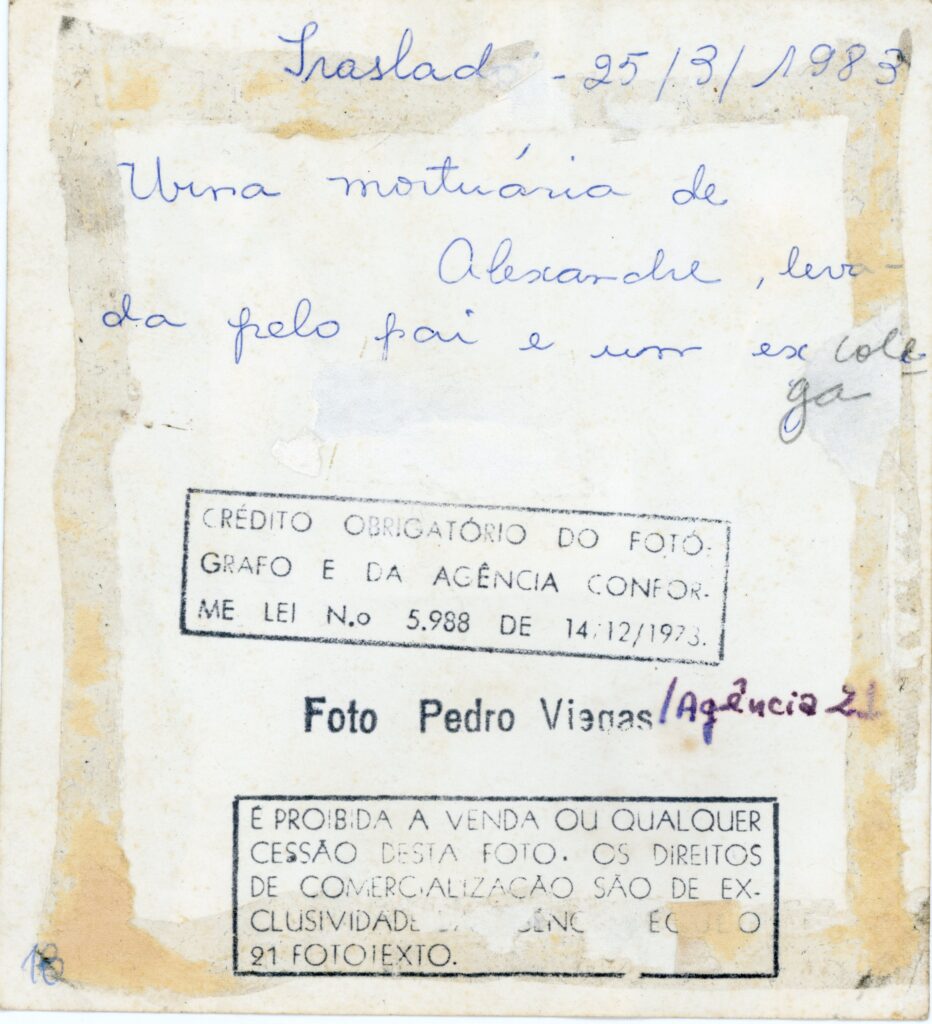 Traslad - 25/3/1983
Urna mortuária de
Alexandre, leva-
da pelo pai e um ex cole
ga
CRÉDITO OBRIGATÓRIO DO FOTÓ-
GRAFO E DA AGÊNCIA CONFOR-
ME LEI N.o 5.988 DE 14/12/1973.
Foto Pedro Viegas/Agência 21
É PROIBIDA A VENDA OU QUALQUER
CESSÃO DESTA FOTO. OS DIREITOS
DE COMERCIALIZAÇÃO SÃO DE EX-
CLUSIVIDADE
21 FOTOTEXTO.
18